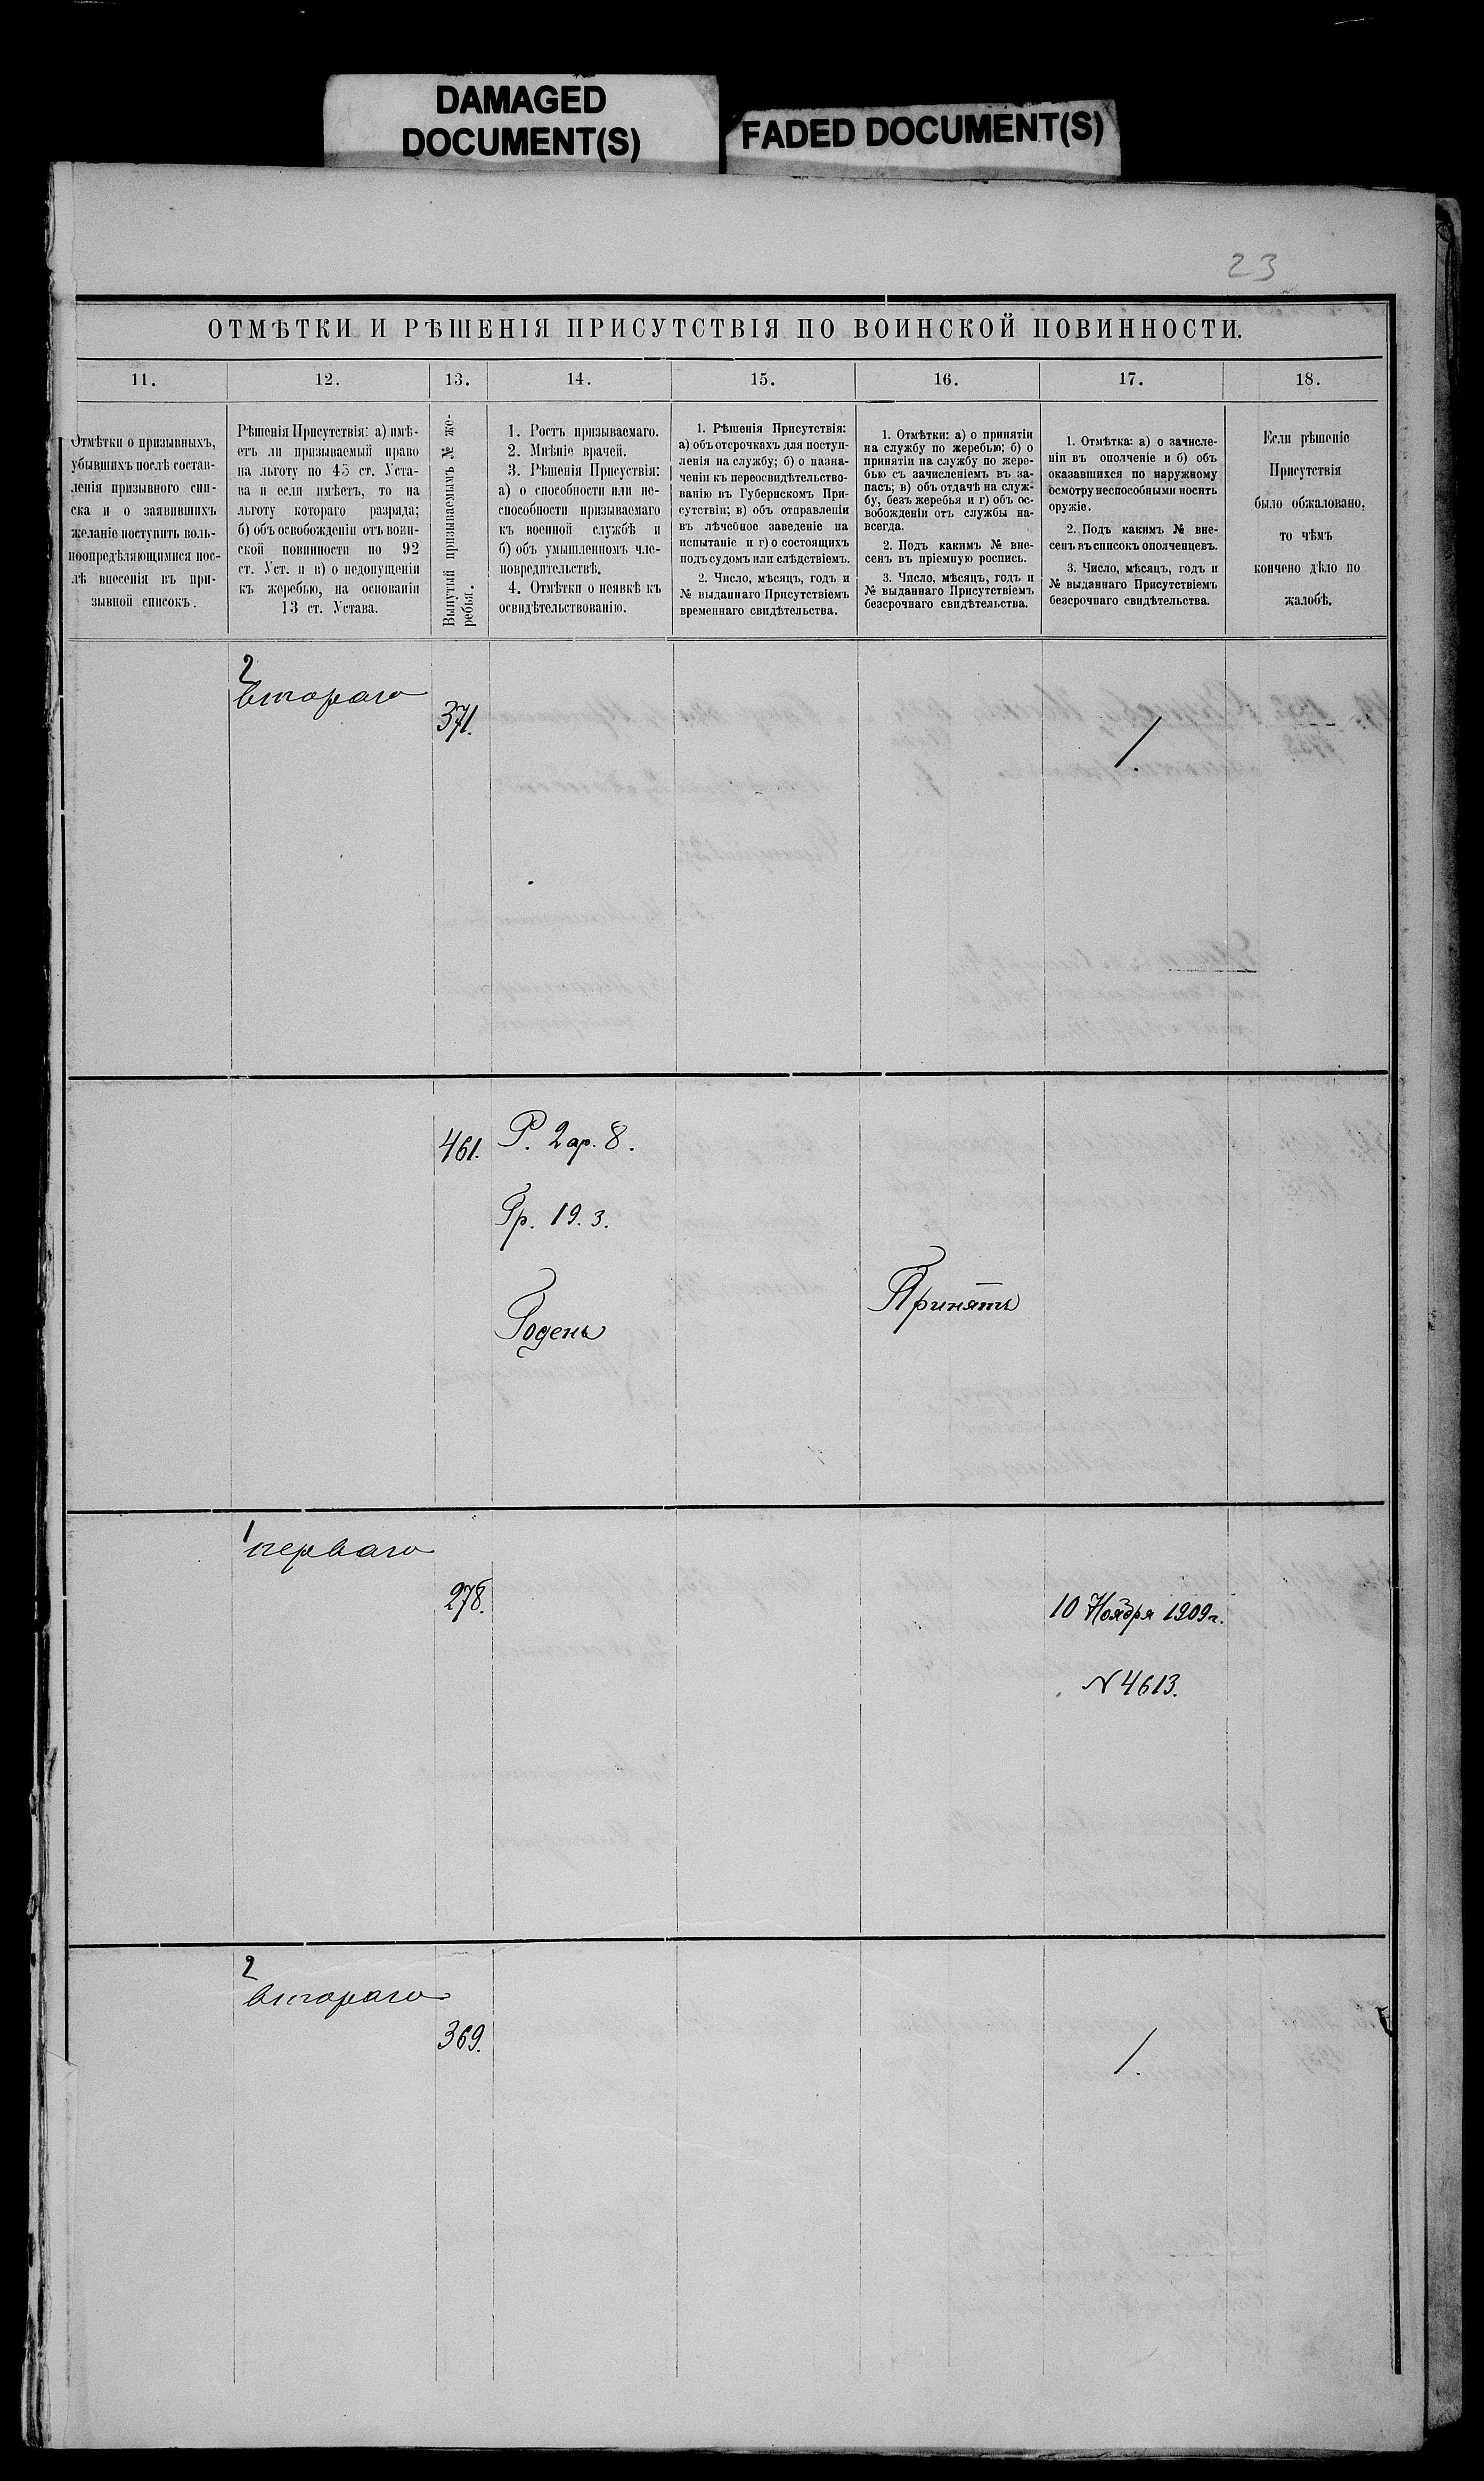 DAMAGED
DOCUMENT(S)
FADED DOCUMENT(S)
23
ОТМѢТКИ И РѢШЕНІЯ ПРИСУТСТВІЯ ПО ВОИНСКОЙ ПОВИННОСТИ.
11.
12.
13.
14.
15.
16.
17.
18.
Отмѣтки о призывныхъ,
убывшихъ послѣ состав-
ленія призывного спи-
ска и о заявившихъ
желаніе поступить воль-
ноопредѣляющимися пос-
лѣ внесенія въ при-
зывной списокъ.
Рѣшенія Присутствія: а) имѣ-
етъ ли призываемый право
на льготу по 45 ст. Уста-
ва и если имѣетъ, то на
льготу котораго разряда;
б) объ освобожденіи отъ воин-
ской повинности по 92
ст. Уст. и в) о недопущеніи
къ жеребью, на основаніи
13 ст. Устава.
Вынутый призываемымъ № же-
ребья.
1. Ростъ призываемаго.
2. Мнѣніе врачей.
3. Рѣшенія Присуствія:
а) о способности или не-
способности призываемаго
къ военной службѣ и
б) объ умышленномъ чле-
новредительствѣ.
4. Отмѣтки о неявкѣ къ
освидѣтельствованію.
1. Рѣшенія Присутствія:
а) объ отсрочкахъ для поступ-
ленія на службу; б) о назна-
ченіи къ переосвидѣтельство-
ванію въ Губернскомъ При-
сутствіи; в) объ отправленіи
въ лѣчебное заведеніе на
испытаніе и г) о состоящихъ
подъ судомъ или слѣдствіемъ.
2. Число, мѣсяцъ, годъ и
№ выданнаго Присутствіемъ
временнаго свидѣтельства.
1. Отмѣтки: а) о принятіи
на службу по жеребью; б) о
принятіи на службу по жере-
бью съ зачисленіемъ въ за-
пасъ; в) объ отдачѣ на служ-
бу, безъ жеребья и г) объ ос-
вобожденіи отъ службы на-
всегда.
2. Подъ какимъ № вне-
сенъ въ пріемную роспись.
3. Число, мѣсяцъ, годъ и
№ выданнаго Присутствіемъ
безсрочнаго свидѣтельства.
1. Отмѣтка: а) о зачисле-
ніи въ ополченіе и б) объ
оказавшихся по наружному
осмотру неспособными носить
оружіе.
2. Подъ какимъ № вне-
сенъ въ списокъ ополченцевъ.
3. Число, мѣсяцъ, годъ и
№ выданнаго Присутствіемъ
безсрочнаго свидѣтельства.
Если рѣшеніе
Присутствія
было обжаловано,
то чѣмъ
кончено дѣло по
жалобѣ.
2
втораго
371.
1.
461.
Р. 2 ар. 8.
Гр. 19. 3.
Годенъ
Принятъ
1
перваго
278.
10 Ноября 1909 г.
N 4613.
2
втораго
369.
1.